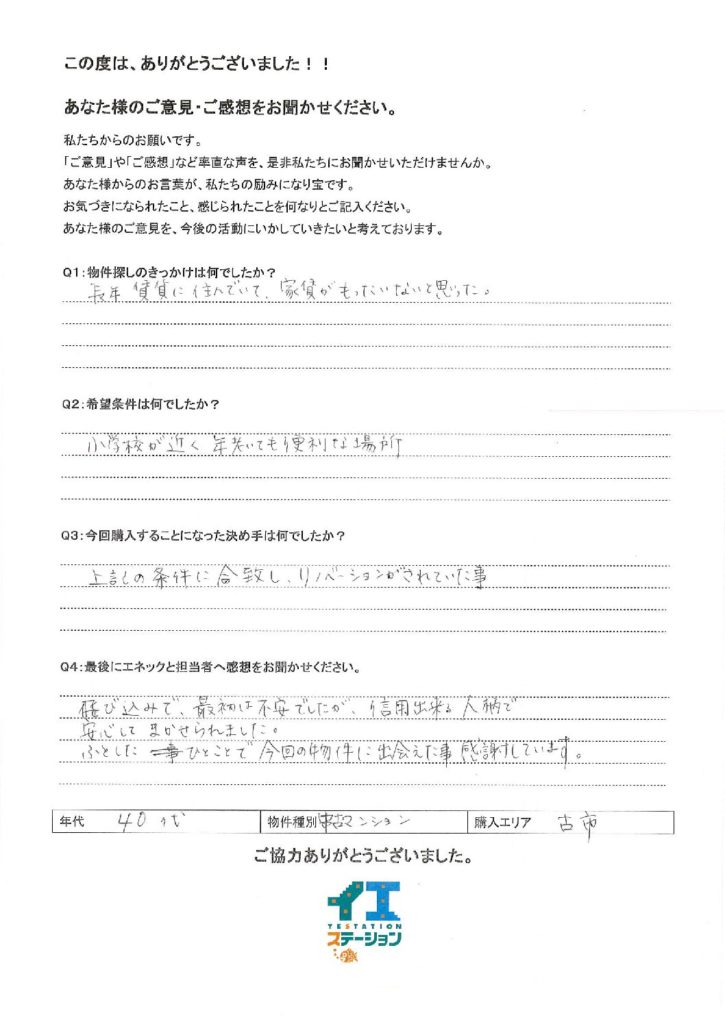 この度は、ありがとうございました！！
あなた様のご意見・ご感想をお聞かせください。
私たちからのお願いです。
「ご意見」や「ご感想」など率直な声を、是非私たちにお聞かせいただけませんか。
あなた様からのお言葉が、私たちの励みになり宝です。
お気づきになられたこと、感じられたことを何なりとご記入ください。
あなた様のご意見を、今後の活動にいかしていきたいと考えております。
Q1:物件探しのきっかけは何でしたか？
長年 賃貸に住んでいて、家賃がもったいないと思った。
Q2:希望条件は何でしたか？
小学校が近く 年老いても便利な場所
Q3:今回購入することになった決め手は何でしたか？
上記の条件に合致し、リノベーションがされていた事
Q4:最後にエネックと担当者へ感想をお聞かせください。
飛び込みで、最初は不安でしたが、信用出来る人柄で
安心してまかせられました。
ふとした ひとことで今回の物件に出会えた事 感謝しています。
年代 40代 物件種別 中古マンション 購入エリア 古市
ご協力ありがとうございました。
イエ
YESTATION
ステーション